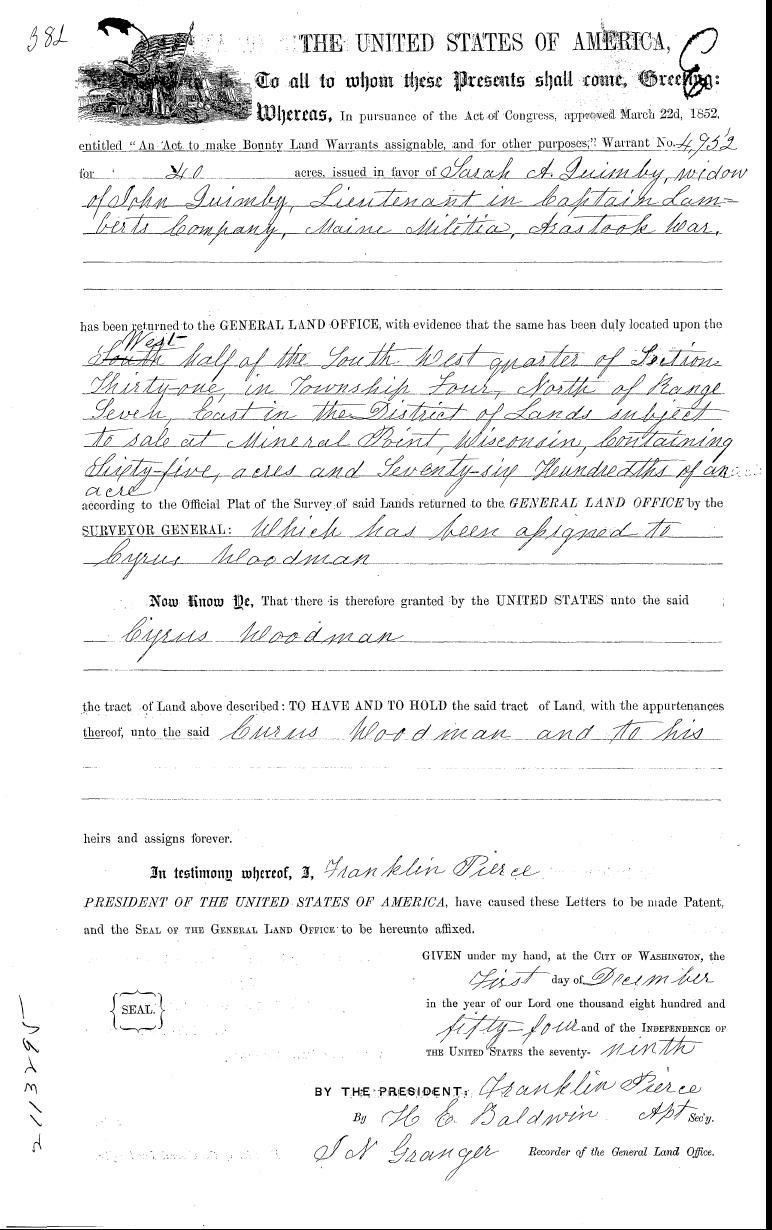 382
THE UNITED STATES OF AMERICA,
To all to whom these Presents shall come, Greeting:
Whereas, In pursuance of the Act of Congress, approved March 22d, 1852,
entitled "An Act to make Bounty Land Warrants assignable, and for other purposes," Warrant No. 4952
for 40 acres, issued in favor of Sarah A. Quimby, widow
of John Quimby, Lieutenant in Captain Lam=
berts Company, Maine Militia, Arastook War.
has been returned to the GENERAL LAND OFFICE, with evidence that the same has been duly located upon the
West
South half of the South West quarter of Section
Thirty-one, in Township Four, North of Range
Seven, East in the District of Lands subject
to sale at Mineral Point, Wisconsin, Containing
Sixty-five, acres and Seventy-six Hundredths of an
acre
according to the Official Plat of the Survey of said Lands returned to the GENERAL LAND OFFICE by the
SURVEYOR GENERAL: Which has been assigned to
Cyrus Woodman
Now Know Ye, That there is therefore granted by the UNITED STATES unto the said
Cyrus Woodman
the tract of Land above described: TO HAVE AND TO HOLD the said tract of Land, with the appurtenances
thereof, unto the said Cyrus Woodman and to his
heirs and assigns forever.
In testimony whereof, I, Franklin Pierce
PRESIDENT OF THE UNITED STATES OF AMERICA, have caused these Letters to be made Patent,
and the SEAL OF THE GENERAL LAND OFFICE to be hereunto affixed.
GIVEN under my hand, at the CITY OF WASHINGTON, the
First day of December
in the year of our Lord one thousand eight hundred and
fifty-four and of the INDEPENDENCE OF
THE UNITED STATES the seventy-ninth
SEAL.
BY THE PRESIDENT: Franklin Pierce
By H. E. Baldwin Ast Sec'y.
J N Granger Recorder of the General Land Office.
2113295